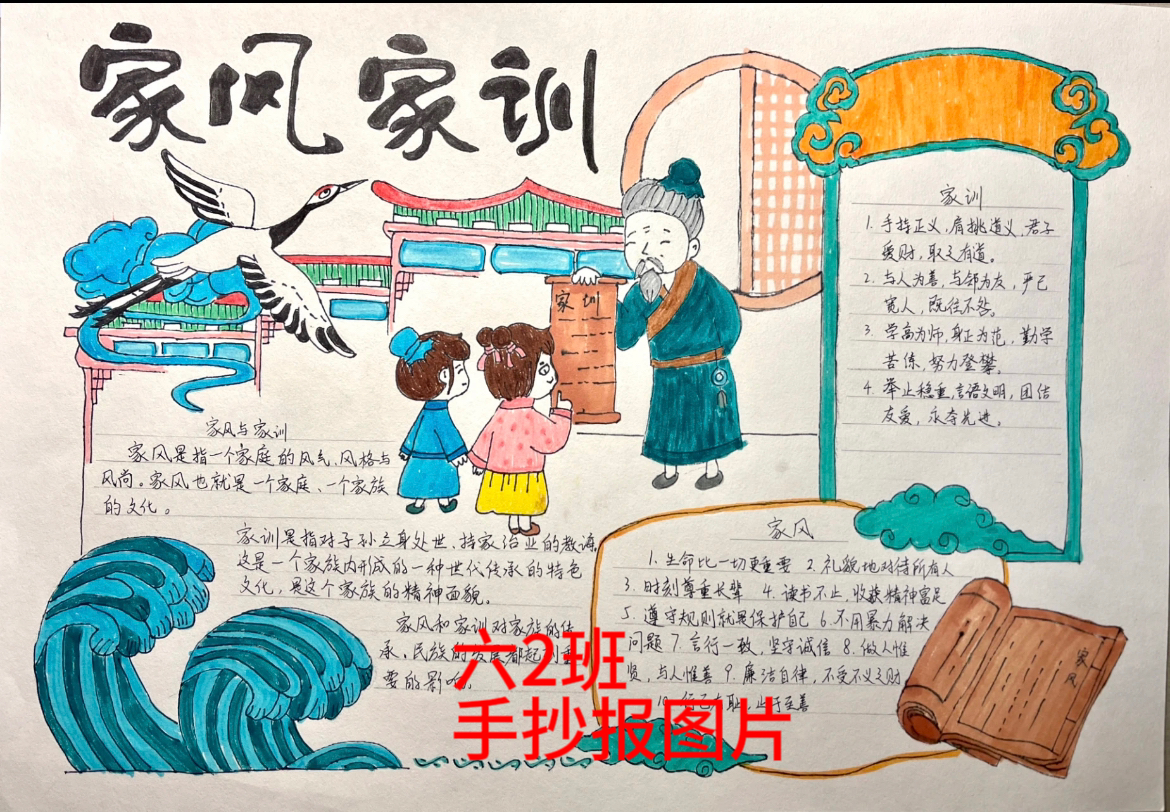 家风家训
家训
家风与家训
家风是指一个家庭的风气、风格与
风尚。家风也就是一个家庭、一个家族
的文化。
家训是指对子孙立身处世、持家治业的教诲。
这是一个家族内形成的一种世代传承的特色
文化，是这个家族的精神面貌。
家风和家训对家族的传
承、民族的发展都起到重
要的影响。
家训
1. 手持正义，肩挑道义，君子
爱财，取之有道。
2. 与人为善，与邻为友，严己
宽人，既往不咎。
3. 学高为师，身正为范，勤学
苦练，努力登攀。
4. 举止稳重，言语文明，团结
友爱，永夺先进。
家风
1. 生命比一切更重要 2. 礼貌地对待所有人
3. 时刻尊重长辈 4. 读书不止，收获精神富足
5. 遵守规则就是保护自己 6. 不用暴力解决
问题 7. 言行一致，坚守诚信 8. 做人惟
贤，与人惟善 9. 廉洁自律，不受不义之财
10. 行己有耻，止于至善
家风
六2班
手抄报图片